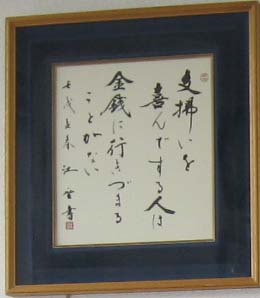 支拂いを
喜んでする人は
金錢に行きづまる
ことがない
壬戌立春 江雲書